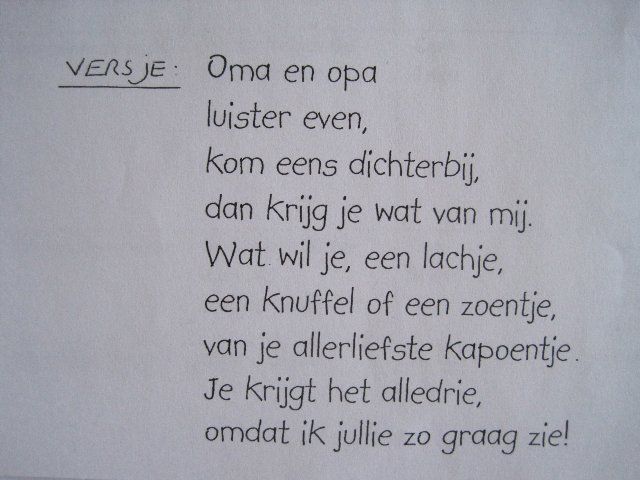 VERSJE: Oma en opa
luister even,
kom eens dichterbij,
dan krijg je wat van mij.
Wat wil je, een lachje,
een knuffel of een zoentje,
van je allerliefste kapoentje.
Je krijgt het alledrie,
omdat ik jullie zo graag zie!